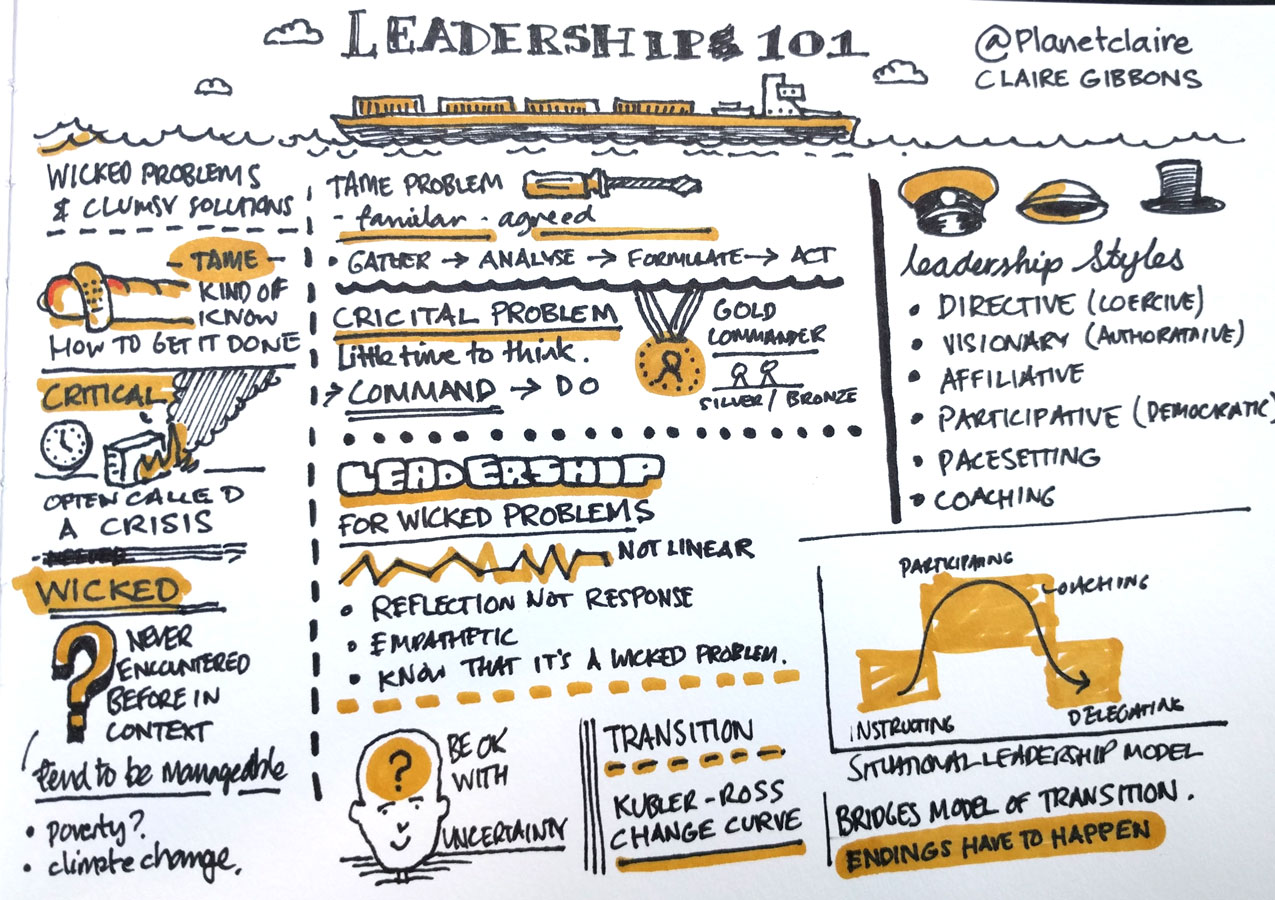 LEADERSHIPS 101
@Planetclaire
CLAIRE GIBBONS
WICKED PROBLEMS
& CLUMSY SOLUTIONS
TAME
KIND OF
KNOW
HOW TO GET IT DONE
CRITICAL
OFTEN CALLED
A CRISIS
WICKED
NEVER
ENCOUNTERED
BEFORE IN
CONTEXT
tend to be manageable
• poverty?
• climate change.
TAME PROBLEM
- familar - agreed
• GATHER → ANALYSE → FORMULATE → ACT
CRICITAL PROBLEM
Little time to think.
→ COMMAND → DO
GOLD
COMMANDER
SILVER / BRONZE
LEADERSHIP
FOR WICKED PROBLEMS
NOT LINEAR
• REFLECTION NOT RESPONSE
• EMPATHETIC
• KNOW THAT IT'S A WICKED PROBLEM.
?
BE OK
WITH
UNCERTAINTY
TRANSITION
KUBLER-ROSS
CHANGE CURVE
leadership Styles
• DIRECTIVE (COERCIVE)
• VISIONARY (AUTHORATAIVE)
• AFFILIATIVE
• PARTICIPATIVE (DEMOCRATIC)
• PACESETTING
• COACHING
PARTICIPATING
COACHING
INSTRUCTING
DELEGATING
SITUATIONAL LEADERSHIP MODEL
BRIDGES MODEL OF TRANSITION.
ENDINGS HAVE TO HAPPEN